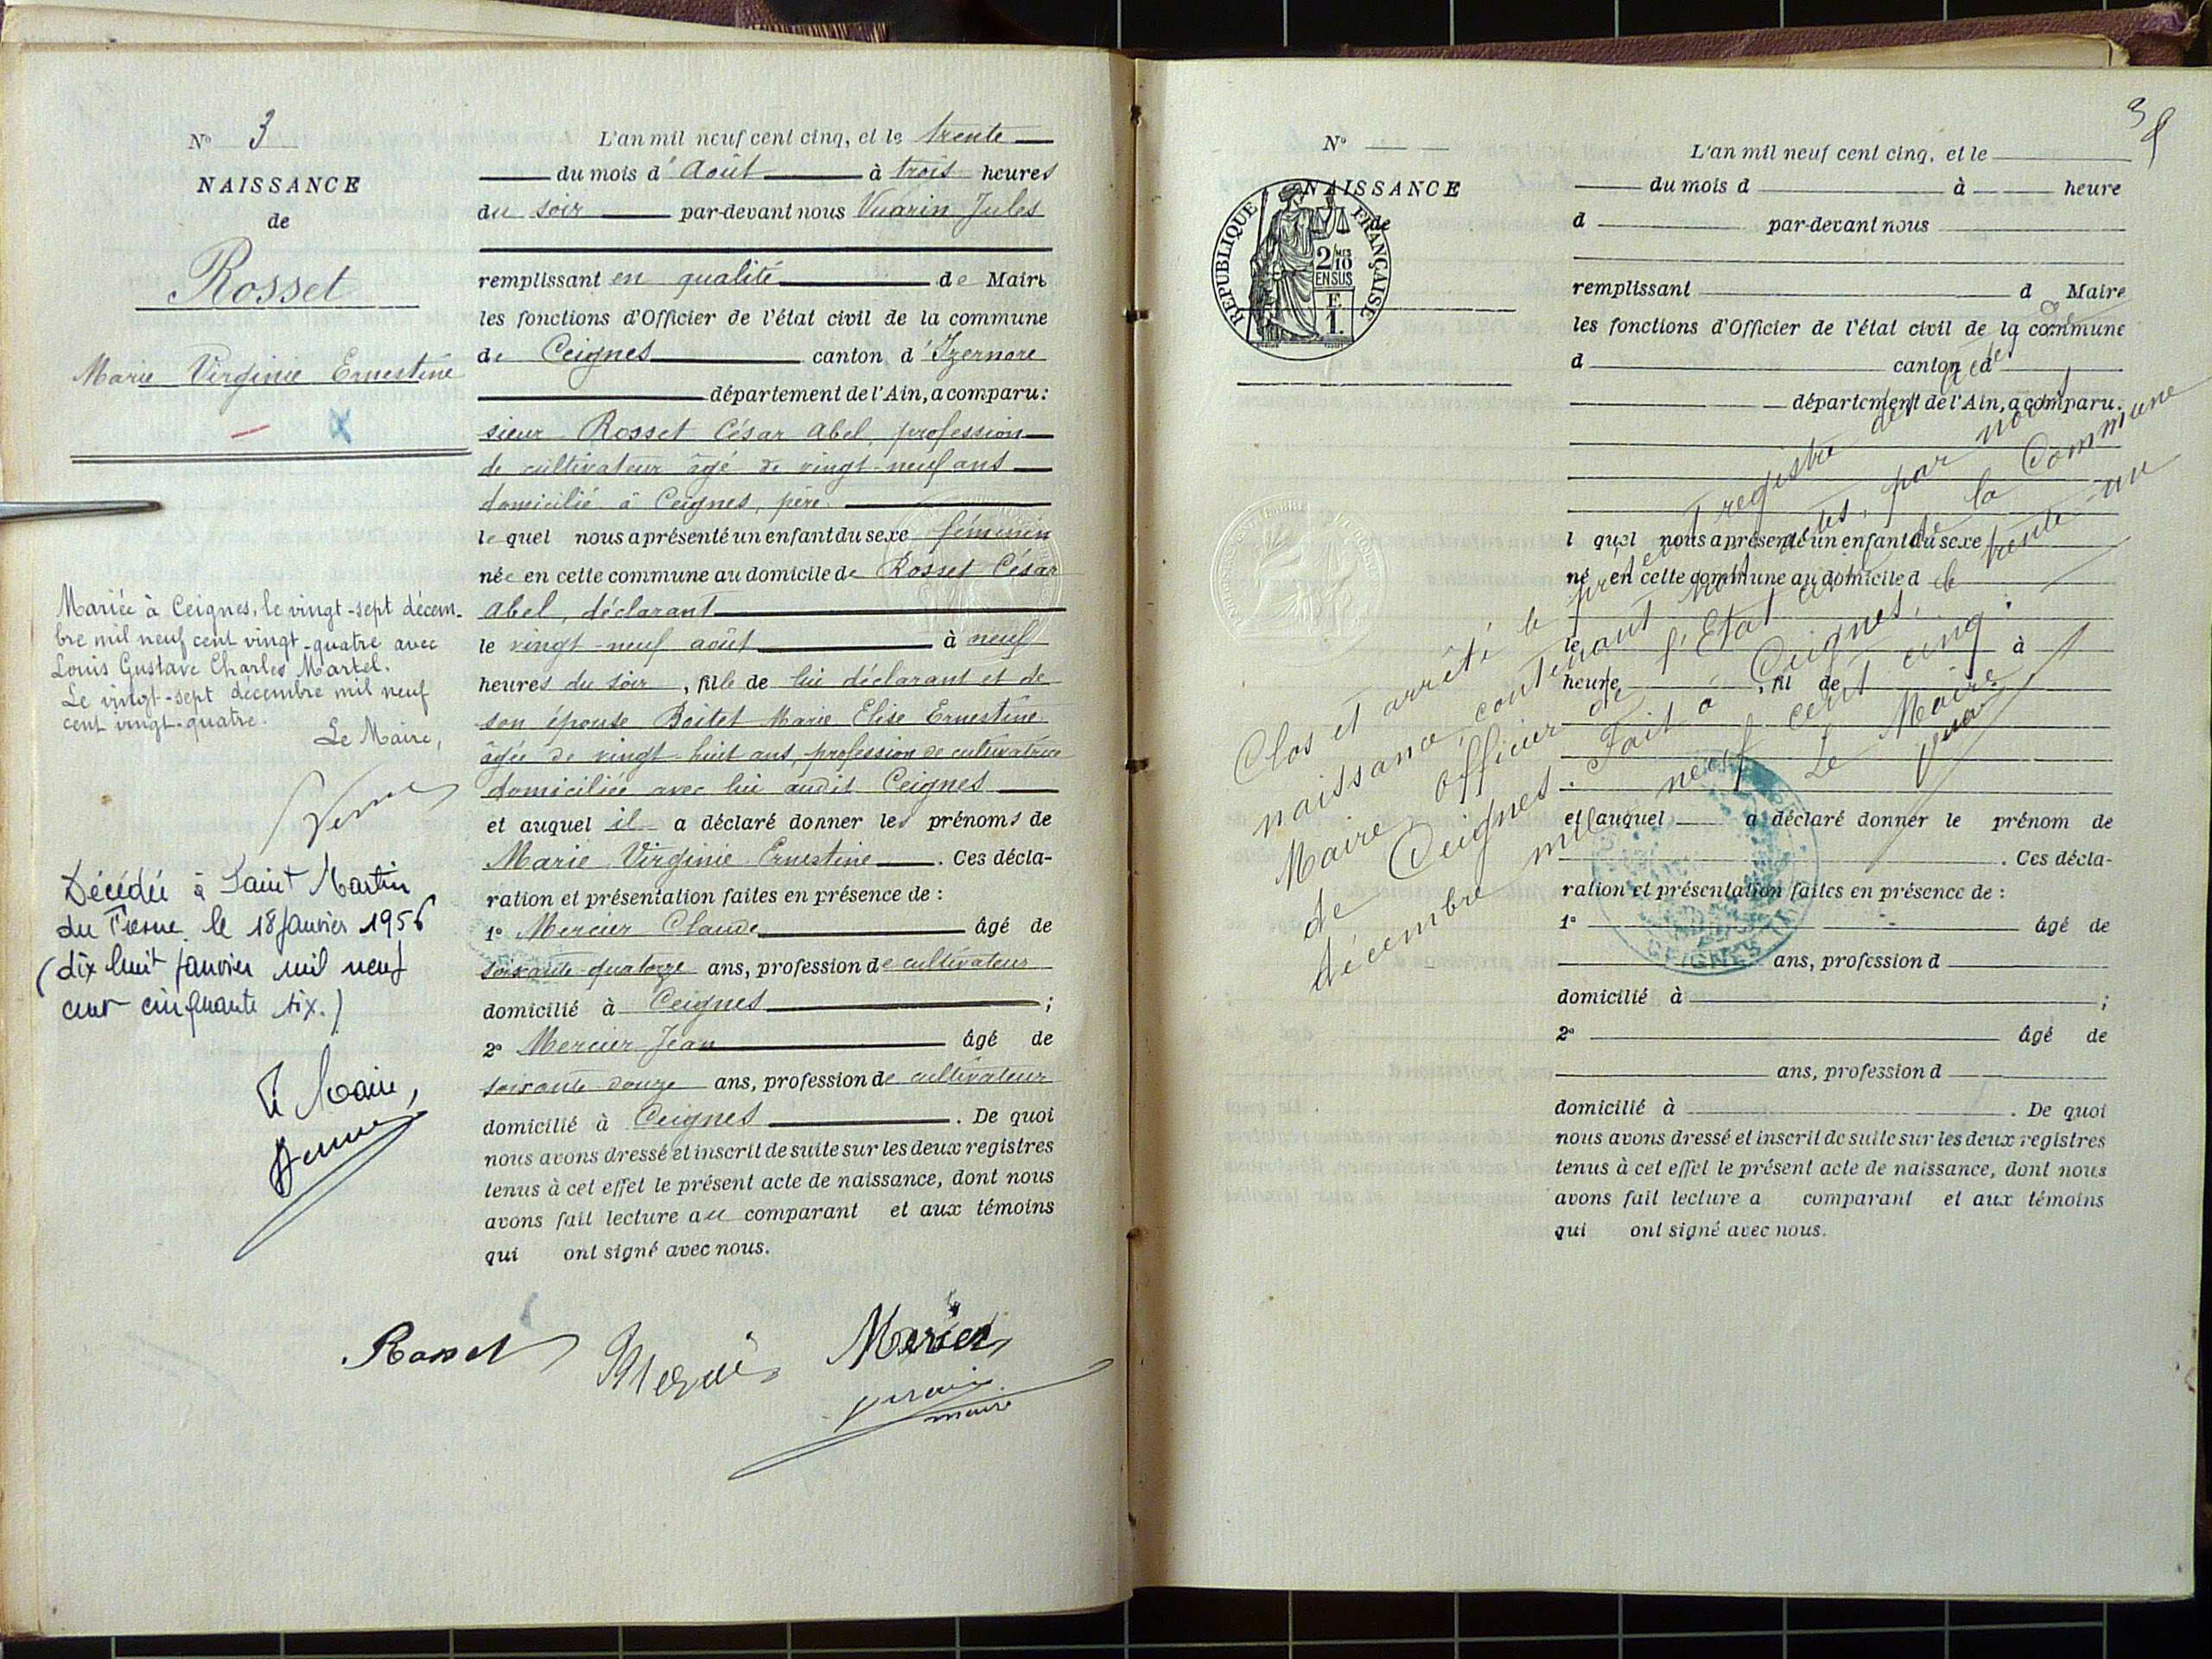 N° 3
NAISSANCE
de
Rosset
Marie Virginie Ernestine
Mariée à Ceignes, le vingt-sept décem-
bre mil neuf cent vingt-quatre avec
Louis Gustave Charles Martel.
Le vingt-sept décembre mil neuf
cent vingt-quatre.
Le Maire,
Décédée à Saint Martin
du Fresne le 18 janvier 1956
(dix huit janvier mil neuf
cent cinquante six.)
Le Maire,
L'an mil neuf cent cinq, et le trente
du mois d'Août à trois heures
du soir par-devant nous Vuarin Jules
remplissant en qualité de Maire
les fonctions d'Officier de l'état civil de la commune
de Ceignes canton d'Izernore
département de l'Ain, a comparu:
sieur Rosset César Abel, profession
de cultivateur âgé de vingt-neuf ans
domicilié à Ceignes, père.
lequel nous a présenté un enfant du sexe féminin
née en cette commune au domicile de Rosset César
Abel, déclarant
le vingt-neuf août à neuf
heures du soir, fille de lui déclarant et de
son épouse Boitet Marie Elise Ernestine
âgée de vingt-huit ans, profession de cultivatrice
domiciliée avec lui audit Ceignes
et auquel il a déclaré donner les prénoms de
Marie Virginie Ernestine. Ces décla-
ration et présentation faites en présence de :
1° Mercier Claude âgé de
soixante quatorze ans, profession de cultivateur
domicilié à Ceignes ;
2° Mercier Jean âgé de
soixante douze ans, profession de cultivateur
domicilié à Ceignes. De quoi
nous avons dressé et inscrit de suite sur les deux registres
tenus à cet effet le présent acte de naissance, dont nous
avons fait lecture au comparant et aux témoins
qui ont signé avec nous.
Rosset Mercier Mercier
Vuarin
maire
3
N°
NAISSANCE
de
REPUBLIQUE FRANÇAISE
2/10 MES
EN SUS
F.
1.
L'an mil neuf cent cinq, et le
du mois d à heure
d par-devant nous
remplissant d Maire
les fonctions d'Officier de l'état civil de la commune
d canton d
département de l'Ain, a comparu.
l quel nous a présenté un enfant du sexe
né en cette commune au domicile d
le à
heure, fil de
et auquel a déclaré donner le prénom de
. Ces décla-
ration et présentation faites en présence de :
1° âgé de
ans, profession d
domicilié à ;
2° âgé de
ans, profession d
domicilié à . De quoi
nous avons dressé et inscrit de suite sur les deux registres
tenus à cet effet le présent acte de naissance, dont nous
avons fait lecture a comparant et aux témoins
qui ont signé avec nous.
Clos et arrêté le présent registre des actes de
naissance, contenant trois actes, par nous
Maire officier de l'Etat civil de la Commune
de Ceignes. Fait à Ceignes, le trente-un
décembre mil neuf cent cinq.
Le Maire.
CEIGNES